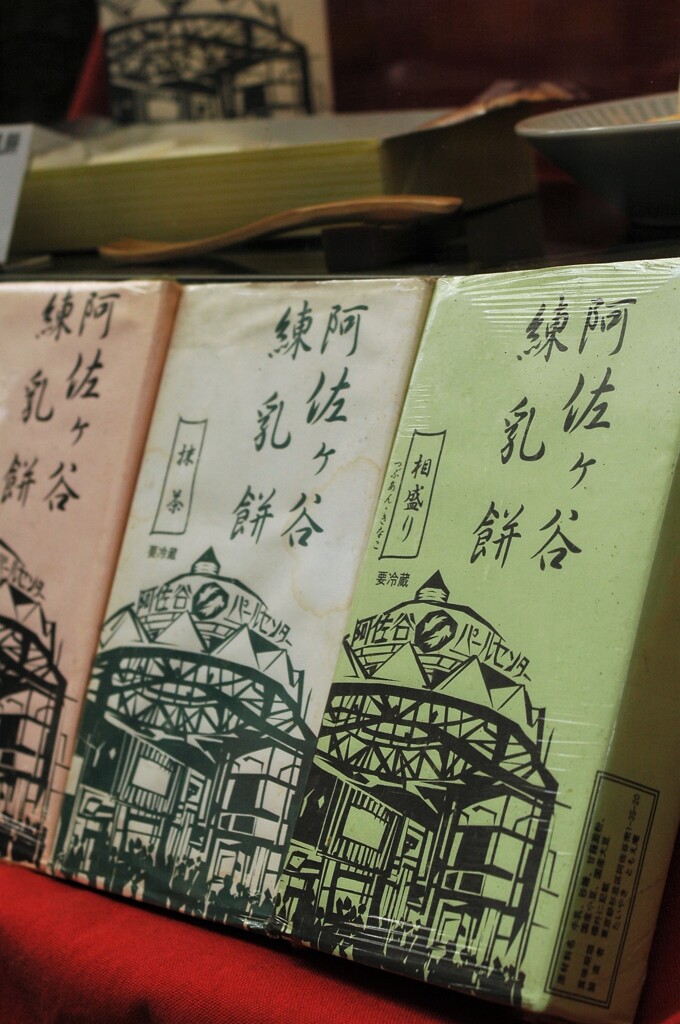 阿佐ヶ谷
練乳餅
阿佐ヶ谷
練乳餅
抹茶
要冷蔵
阿佐谷 パールセンター
阿佐ヶ谷
練乳餅
相盛り
つぶあん・きなこ
要冷蔵
阿佐谷 パールセンター